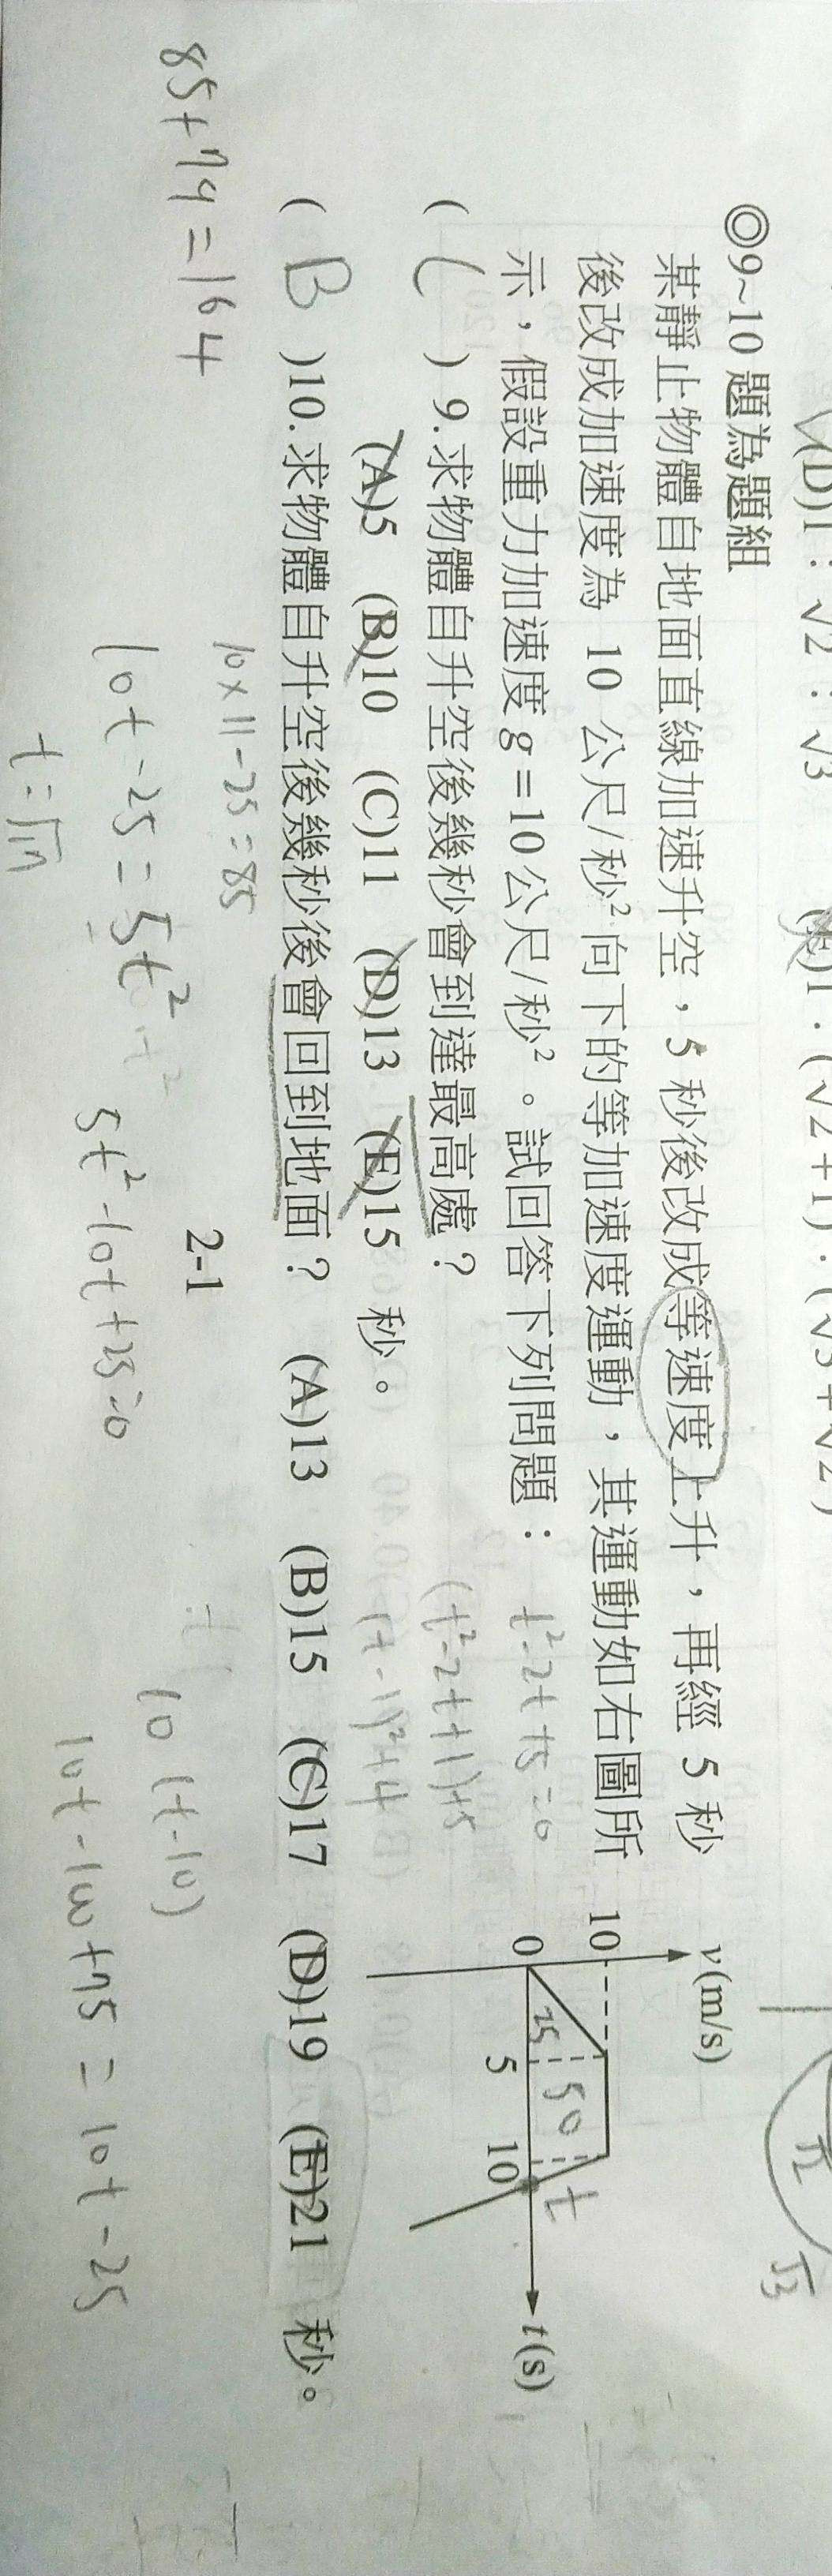 (D)1：√2：√3
◎9~10 題為題組
某靜止物體自地面直線加速升空，5 秒後改成等速度上升，再經 5 秒
後改成加速度為 10 公尺/秒²向下的等加速度運動，其運動如右圖所
示，假設重力加速度 g＝10 公尺/秒²。試回答下列問題：
v(m/s)
10
0
5
10
t(s)
25
50
t
( C ) 9.求物體自升空後幾秒會到達最高處？
(A)5 (B)10 (C)11 (D)13 (E)15 秒。
( B )10.求物體自升空後幾秒後會回到地面？ (A)13 (B)15 (C)17 (D)19 (E)21 秒。
t²-2t+5=0
(t²-2t+1)+5
(t-1)²+4
10×11-25=85
85+79=164
2-1
10t-25=5t²
5t²-10t+25=0
10(t-10)
10t-100+75=10t-25
π
√3